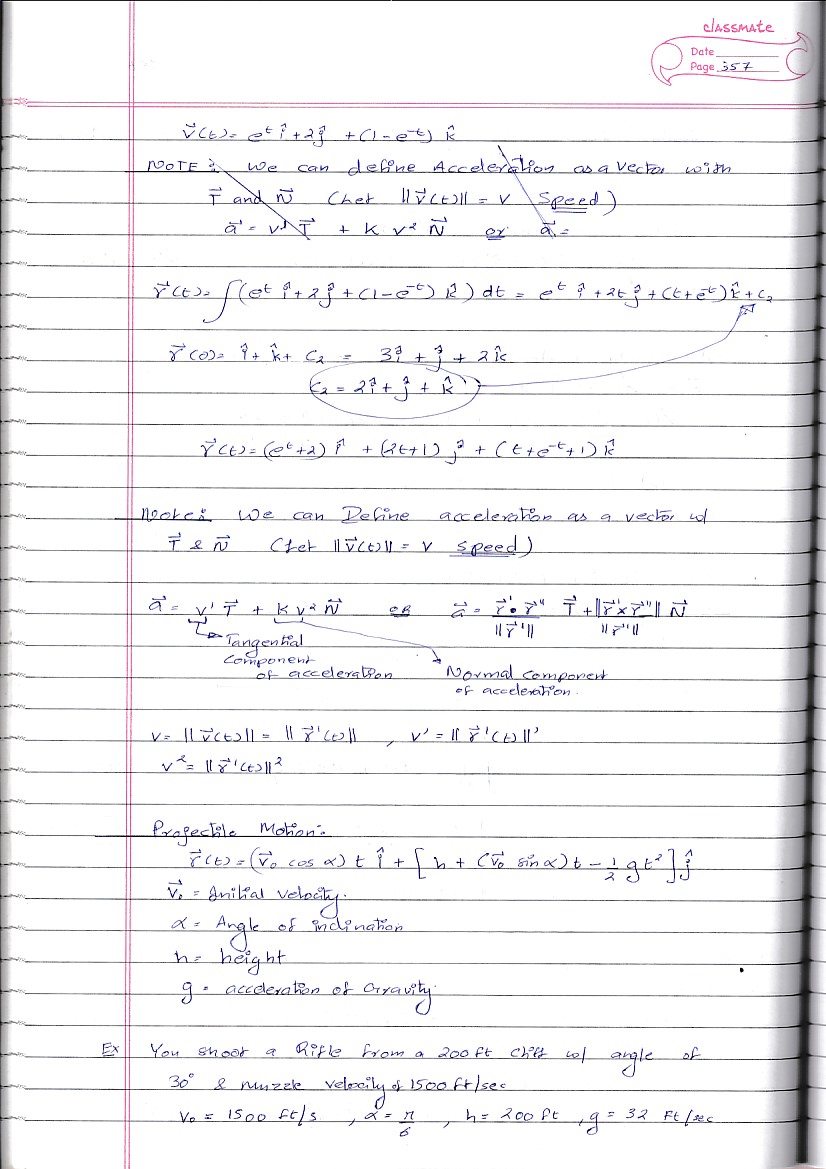 classmate
Date
Page 357
v⃗(t) = e^t î + 2ĵ + (1 - e^-t) k̂
NOTE: We can define Acceleration as a vector with
T⃗ and N⃗ (Let ||v⃗(t)|| = v Speed)
a⃗ = v' T⃗ + K v² N⃗ or a⃗ =
r⃗(t) = ∫(e^t î + 2ĵ + (1 - e^-t) k̂) dt = e^t î + 2t ĵ + (t + e^-t) k̂ + C₂
r⃗(0) = î + k̂ + C₂ = 3î + ĵ + 2k̂
C₂ = 2î + ĵ + k̂
r⃗(t) = (e^t + 2) î + (2t + 1) ĵ + (t + e^-t + 1) k̂
Note: We can Define acceleration as a vector w/
T⃗ & N⃗ (Let ||v⃗(t)|| = v speed)
a⃗ = v' T⃗ + K v² N⃗ OR a⃗ = (r⃗' • r⃗'')/||r⃗'|| T⃗ + ||r⃗' × r⃗''||/||r⃗'|| N⃗
Tangential
component
of acceleration
Normal component
of acceleration.
v = ||v⃗(t)|| = ||r⃗'(t)|| , v' = ||r⃗'(t)||'
v² = ||r⃗'(t)||²
Projectile Motion:
r⃗(t) = (v⃗₀ cos α) t î + [h + (v⃗₀ sin α) t - 1/2 g t²] ĵ
v⃗₀ = Initial velocity.
α = Angle of inclination
h = height
g = acceleration of Gravity.
Ex You shoot a Rifle from a 200 ft Cliff w/ angle of
30° & muzzle velocity of 1500 ft/sec
v₀ = 1500 ft/s , α = π/6 , h = 200 ft , g = 32 Ft/sec